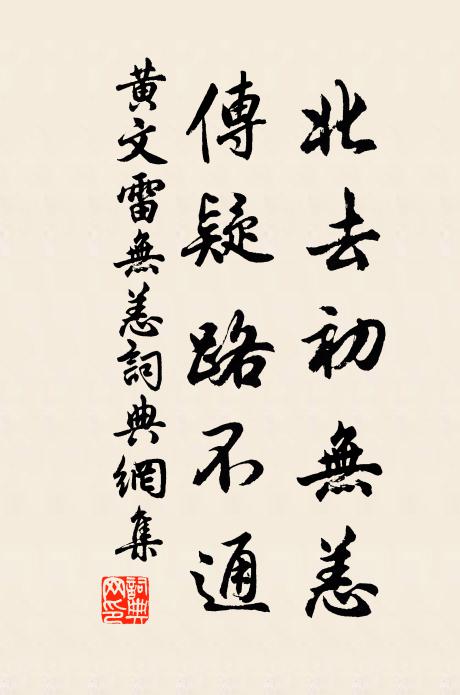 北去初無恙
傳疑路不通
黃文雷無恙詞典網集
詞典網印